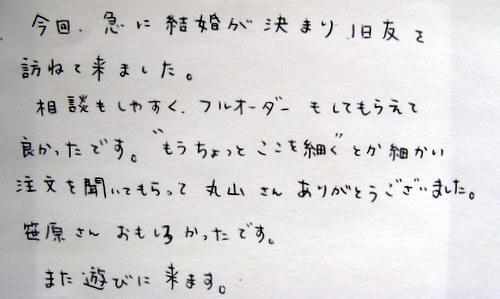 今回、急に結婚が決まり、旧友を
訪ねて来ました。
相談もしやすく、フルオーダーもしてもらえて
良かったです。"もうちょっとここを細く"とか細かい
注文を聞いてもらって丸山さんありがとうございました。
笹原さんおもしろかったです。
また遊びに来ます。